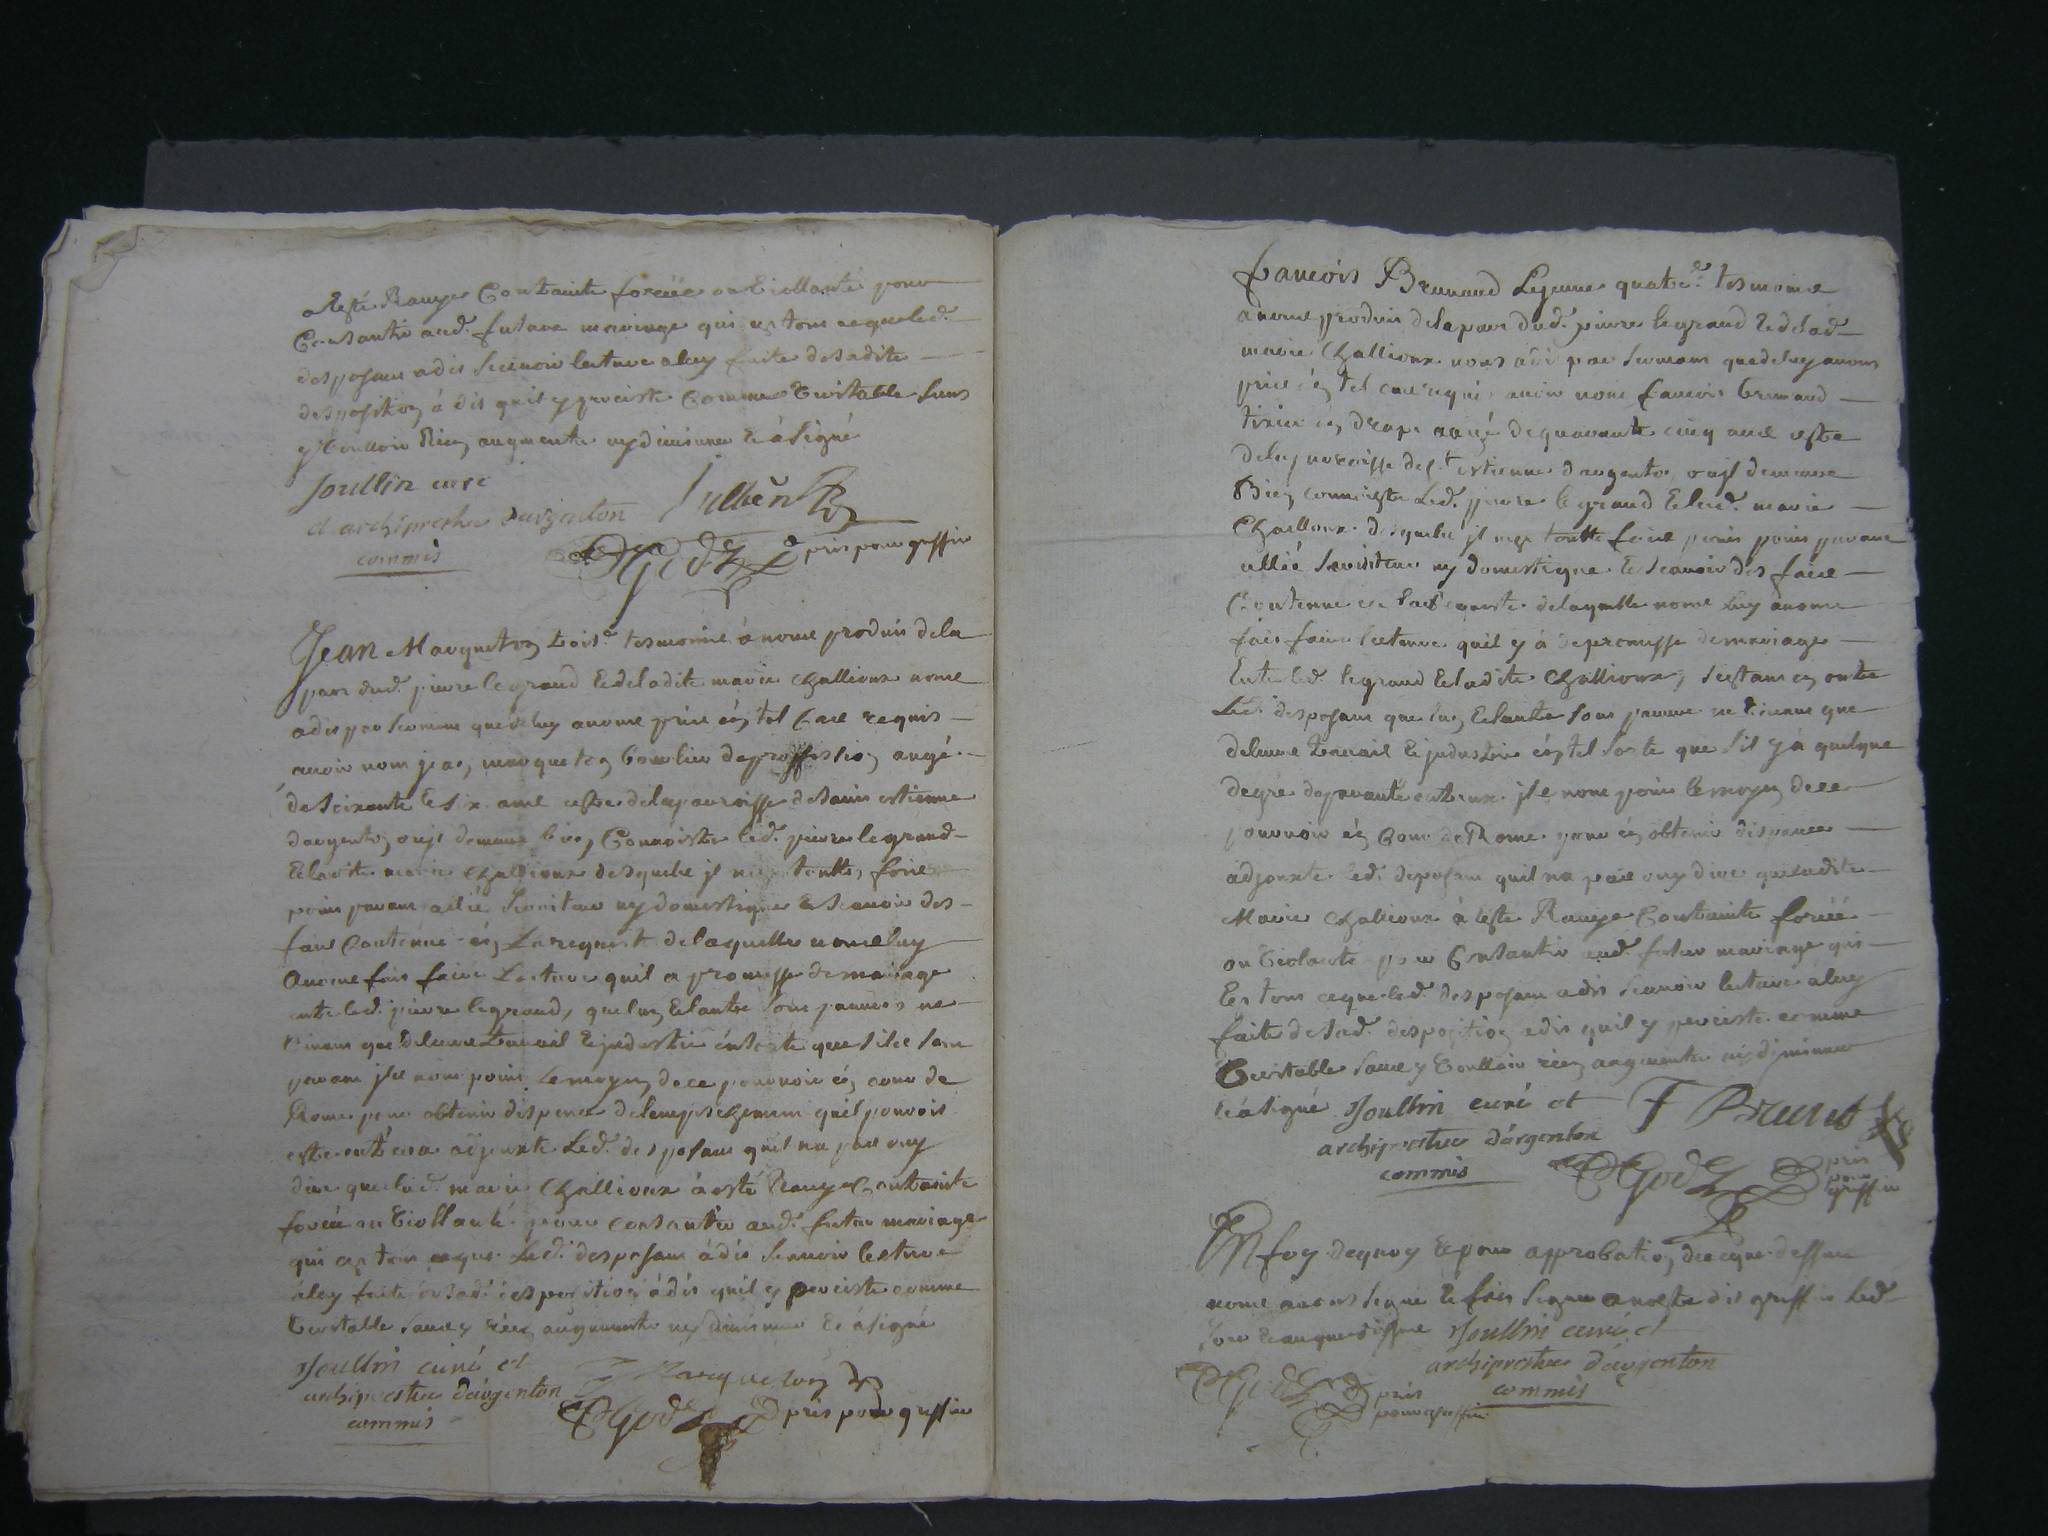 a esté Ravye Contrainte forcée ou Viollantée pour
Consantir aud. futare mariage qui est tous ce que led.
desposant a dis scavoir lecture a luy faite de sadite
desposition à dis quil y perciste comme veritable sans
y vouloir Rien augmenter ny diminuer et à signé
Joullin curé
et archiprestre d'argenton
commis
pris pour greffier
Jean Marqueton trois.e tesmoins à nous produis de la
part dud. pierre legrand et de ladite marie Challioux nous
a dis par serment que de luy avons pris en tel cas requis
avoir nom jean marqueton de proffession augé
de soixante et six ans estre de la paroisse de saint estienne
dargenton ou jl demeure bien Connoistre led. pierre legrand
et ladite marie Challioux desquels jl nest toutte fois
poins parans allié serviteur ny domestique et scavoir des
fais Contenue en la requeste de laquelle nous luy
avons fais faire Lecture quil a promesse de mariage
entre led. pierre legrand, que lun et lautre sont pauvres ne
vivans que de leurs travail et jndustrie en sorte que sils sont
parans jls nons poins le moyen de ce pourvoir en cour de
Rome pour obtenir dispence de lempeschement quil pouroit
estre entreux adjouxte Led. desposant quil na pas ouy
dire que lad. marie Challioux à esté Ravye Contrainte
forcée ou Viollanté pour consantir aud. futur mariage
qui est tous ce que Led. desposant à dis scavoir lecture
à luy faite de sad. desposition à dis quil y perciste comme
veritable sans y rien augmenter ny diminuer et à signé
Joullin curé et
archiprestre d'argenton
commis
Marqueton
pris pour greffier
francois Brunaud Lejeune quatr.e tesmoins
a nous produis de la part dud. pierre legrand et de lad.
marie Challioux nous a dis par serment que de luy avons
pris en tel cas requis avoir nom francois brunaud
en draps augé de quarante cinq ans estre
de la paroisse de s.t estienne dargenton ou jl demeure
Bien connoistre Led. pierre le grand et lad. marie
Challioux desquels jl nest toutte fois poins parans
allié serviteur ny domestique et scavoir des fais
Contenue en lad. requeste de laquelle nous Luy avons
fais faire lecture quil y à de promesse de mariage
Entre led. legrand et ladite Challioux, en outre
Led. desposant que lun et lautre sons pauvre ne vivans que
de leurs travail et jndustrie en tel sorte que sil y à quelque
degré de paranté entreux jls nons poins le moyen de ce
pourvoir en Cour de Rome pour en obtenir dispance
adjouxte led. deposant quil na pas ouy dire que ladite
Marie Challioux à esté Ravye Contrainte forcée
ou violanté pour Consantir aud. futur mariage qui
est tous ce que led. desposant a dis scavoir lecture à luy
faite de sad. desposition a dis quil y perciste comme
veritable sans y voulloir rien augmenter ni diminuer
et à signé Joullin curé et
archiprestre d'argenton
commis
F Brunet
pris
pour
greffier
En foy de quoy et pour approbation de ce que dessus
nous avons signé et fais signer a nostre dit greffier Led.
jour et an que dessus Joullin curé et
archiprestre d'argenton
commis
pris
pour greffier